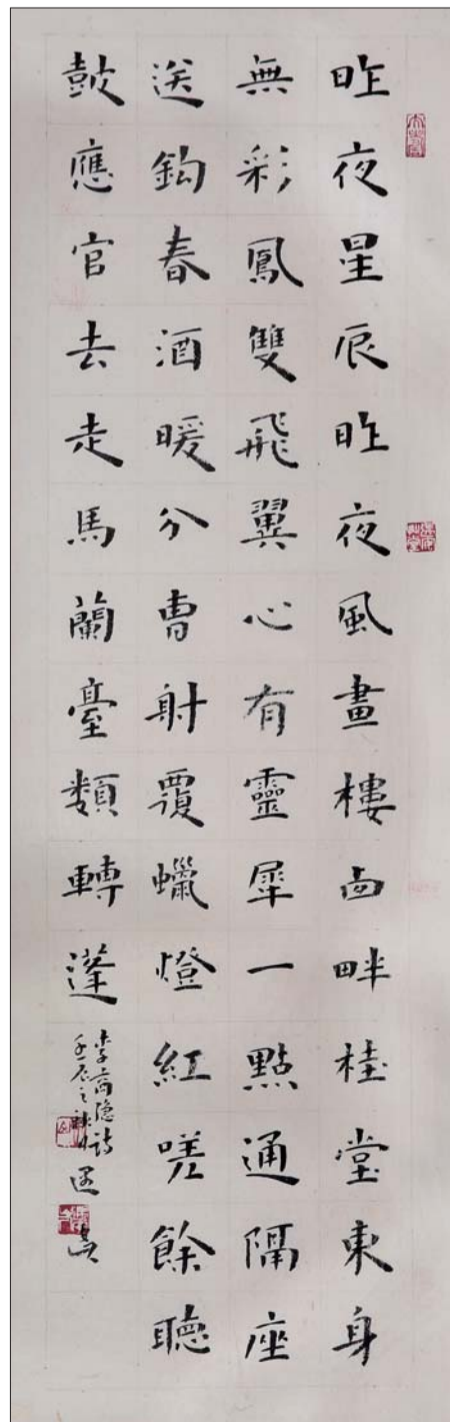 昨夜星辰昨夜風畫樓西畔桂堂東身
無彩鳳雙飛翼心有靈犀一點通隔座
送鈎春酒暖分曹射覆蠟燈紅嗟餘聽
鼓應官去走馬蘭臺類轉蓬
李商隐詩
壬辰之秋